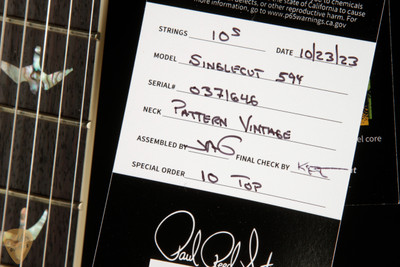 to chemicals
state of California to cause
defects, or other reproductive harm. For
more information, go to www.p65warnings.ca.gov
STRINGS 10s DATE 10/23/23
MODEL SINGLECUT 594
SERIAL# 0371646
NECK PATTERN VINTAGE
ASSEMBLED BY FINAL CHECK BY
SPECIAL ORDER 10 TOP
Paul Reed Smith
el core